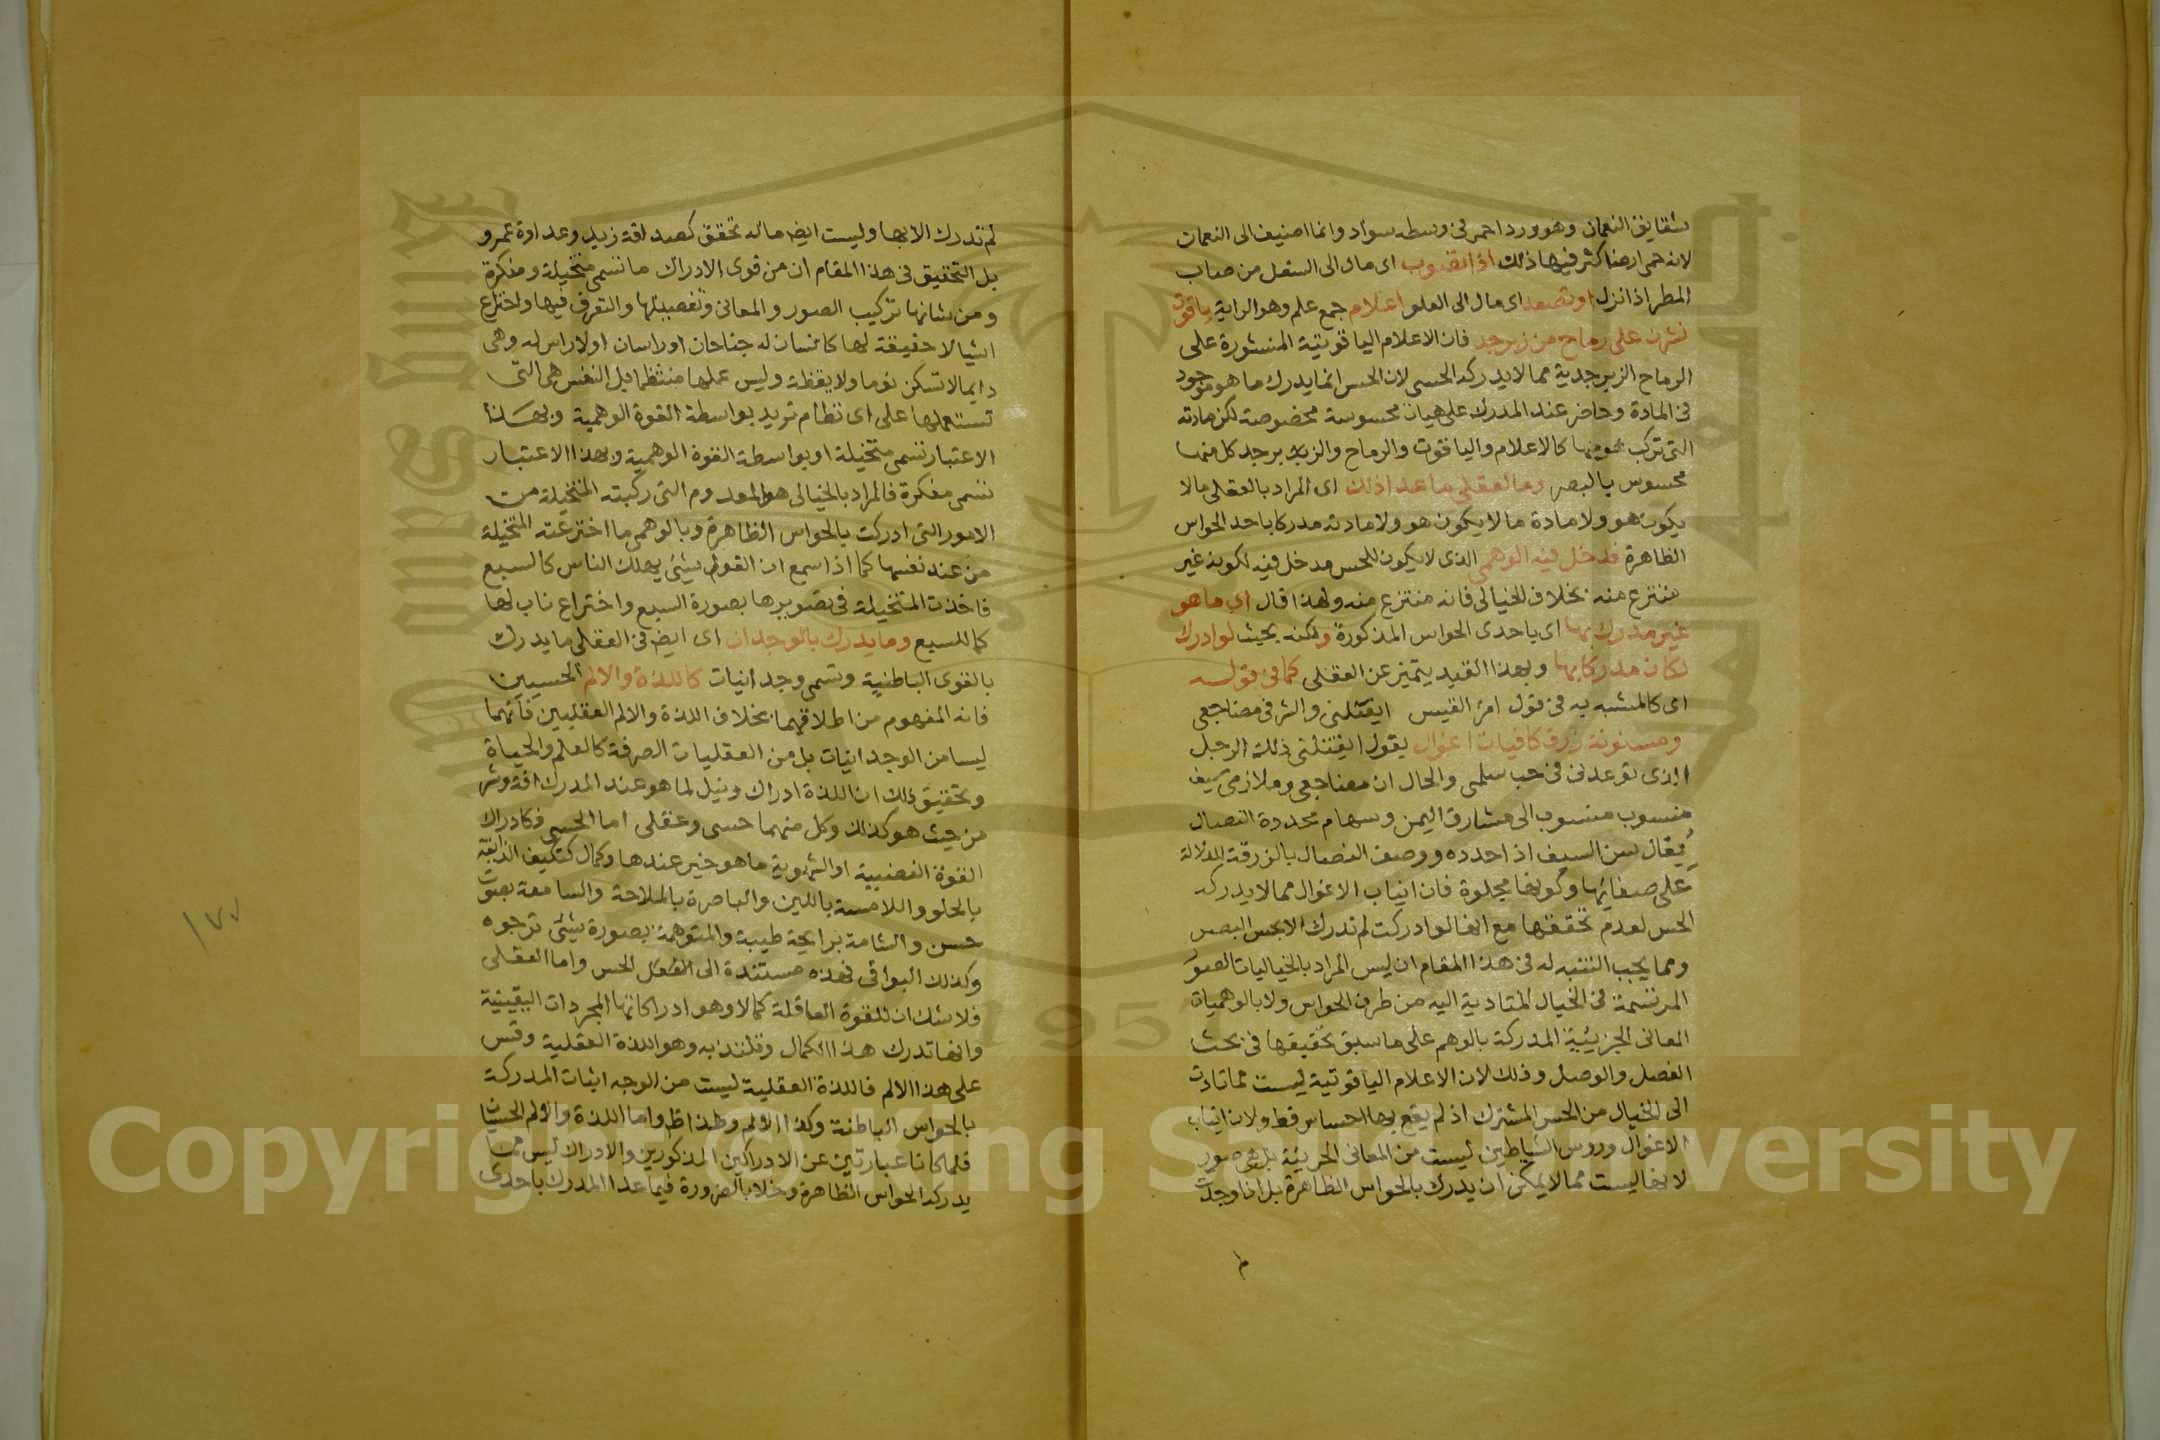 شقايق النعمان وهو ورد احمر فى وسطه سواد وانما اضيف الى النعمان
لانه حمى ارضا كثر فيها ذلك اذا تصوب اى مال الى السفل من صاب
المطر اذا نزل او تصعد اى مال الى العلو اعلام جمع علم وهو الراية ياقوت
نشرن على رماح من زبرجد فان الاعلام الياقوتية المنشورة على
الرماح الزبرجدية مما لا يدركه الحس لان الحس انما يدرك ما هو موجود
فى المادة وحاضر عند المدرك على هيات محسوسة مخصوصة لكن مادته
التى تركب هو منها كالاعلام والياقوت والرماح والزبرجد كل منها
محسوس بالبصر وما لعقلى ما عدا ذلك اى المراد بالعقلى مالا
يكون هو ولا مادة ما لا يكون هو ولا مادته مدركا باحد الحواس
الظاهرة فدخل فيه الوهمى الذى لا يكون للحس مدخل فيه لكونه غير
منتزع منه بخلاف الخيالى فانه منتزع منه ولهذا قال اى ما هو
غير مدرك بها اى باحدى الحواس المذكورة ولكنه بحيث لو ادرك
لكان مدركا بها وبهذا القيد يتميز عن العقلى كما فى قوله
اى كالمشبه به فى قول امرء القيس ايقتلنى والمشرفى مضاجعى
ومسنونة زرق كانياب اغوال يقول ايقتلنى ذلك الرجل
الذى توعدنى فى حب سلمى والحال ان مضاجعى وملازمى سيف
منسوب الى مشارف اليمن وسهام محددة النصال
يقال سن السيف اذا حدده ووصف النصال بالزرقة للدلالة
على صفائها وكونها مجلوة فان انياب الاغوال مما لا يدركه
الحس لعدم تحققها مع انها لو ادركت لم تدرك الا بحس البصر
ومما يجب التنبه له فى هذا المقام ان ليس المراد بالخياليات الصور
المرتسمة فى الخيال المتادية اليه من طرق الحواس ولا بالوهمياة
المعانى الجزيئية المدركة بالوهم على ما سبق تحقيقها فى بحث
الفصل والوصل وذلك لان الاعلام الياقوتية ليست مما تادت
الى الخيال من الحس المشترك اذ لم يقع بها احساس قط ولان انياب
الاغوال وروس الشياطين ليست من المعانى الجزيئة بل هى صور
لانها ليست مما لا يمكن ان يدرك بالحواس الظاهرة بل اذا وجدت
لم تدرك الا بها وليست ايضا ماله تحقق كصداقة زيد وعداوة عمرو
بل التحقيق فى هذا المقام ان من قوى الادراك ما تسمى متخيلة ومفكرة
ومن شانها تركيب الصور والمعانى وتفصيلها والتصرف فيها واختراع
اشيا لا حقيقة لها كانسان له جناحان اوراسان اولا راس له وهى
دايما لا تسكن نوما ولا يقظة وليس عملها منتظما بل النفس هى التى
تستعملها على اى نظام تريد بواسطة القوة الوهمية وبهذا
الاعتبار تسمى متخيلة او بواسطة القوة الوهمية وبهذا الاعتبار
تسمى مفكرة فالمراد بالخيالى هو المعدوم التى ركبته المتخيلة من
الامور التى ادركت بالحواس الظاهرة وبالوهمى ما اخترعته المتخيلة
من عند نفسها كما اذا سمع ان القول شيئ يهلك الناس كالسبع
فاخذت المتخيلة فى تصويرها بصورة السبع واختراع ناب لها
كما للسبع وما يدرك بالوجدان اى ايض فى العقلى ما يدرك
بالقوى الباطنية وتسمى وجدانيات كاللذة والالم الحسيين
فانه المفهوم من اطلاقهما بخلاف اللذة والالم العقليين فانهما
ليسا من الوجدانيات بل من العقليات الصرفة كالعلم والحياة
وتحقيق ذلك ان اللذة ادراك ونيل لما هو عند المدرك افة وشر
من حيث هو كذلك وكل منهما حسى وعقلى اما الحسى فكادراك
القوة الغضبية او الشهوية ما هو خير عندها وكمال كتكيف الذايقة
بالحلو واللامسة باللين والباصرة بالملاحة والسامعة بصوت
حسن والشامة برايحة طيبة والمتوهمة بصورة شيئ ترجوه
وكذلك البواقى فهذه مستندة الى الحس واما العقلى
فلا شك ان للقوة العاقلة كمالا وهو ادراكاتها المجردات اليقينية
وانها تدرك هذا الكمال وتلتذ به وهو اللذة العقلية وقس
على هذا الالم فاللذة العقلية ليست من الوجدانيات المدركة
بالحواس الباطنة وكذا الالم وهذا ظ واما اللذة والالم الحسيان
فلما كانا عبارتين عن الادراكين المذكورين والادراك ليس مما
يدركه الحواس الظاهرة دخلا بالضرورة فيما عدا المدرك باحدى
١٧٧
King Saud University
1957
Copyright © King Saud University